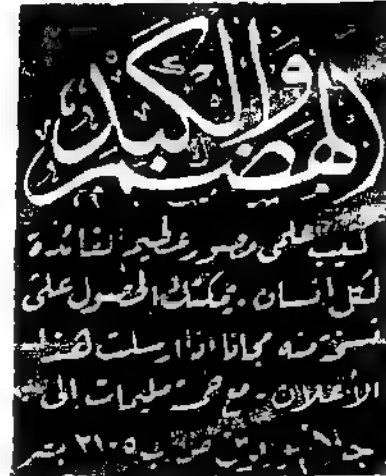 الهضم والكبد
كتيب علمى مصور عظيم الفائدة
لكل انسان . يمكنك الحصول على
نسخة منه مجانا اذا ارسلت هذا
الأعلان - مع خمسة مليمات إلى
ص ب ٢١٠٥